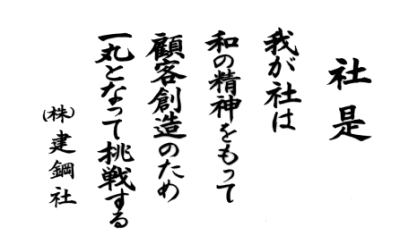 社是
我が社は
和の精神をもって
顧客創造のため
一丸となって挑戦する
(株)建鋼社